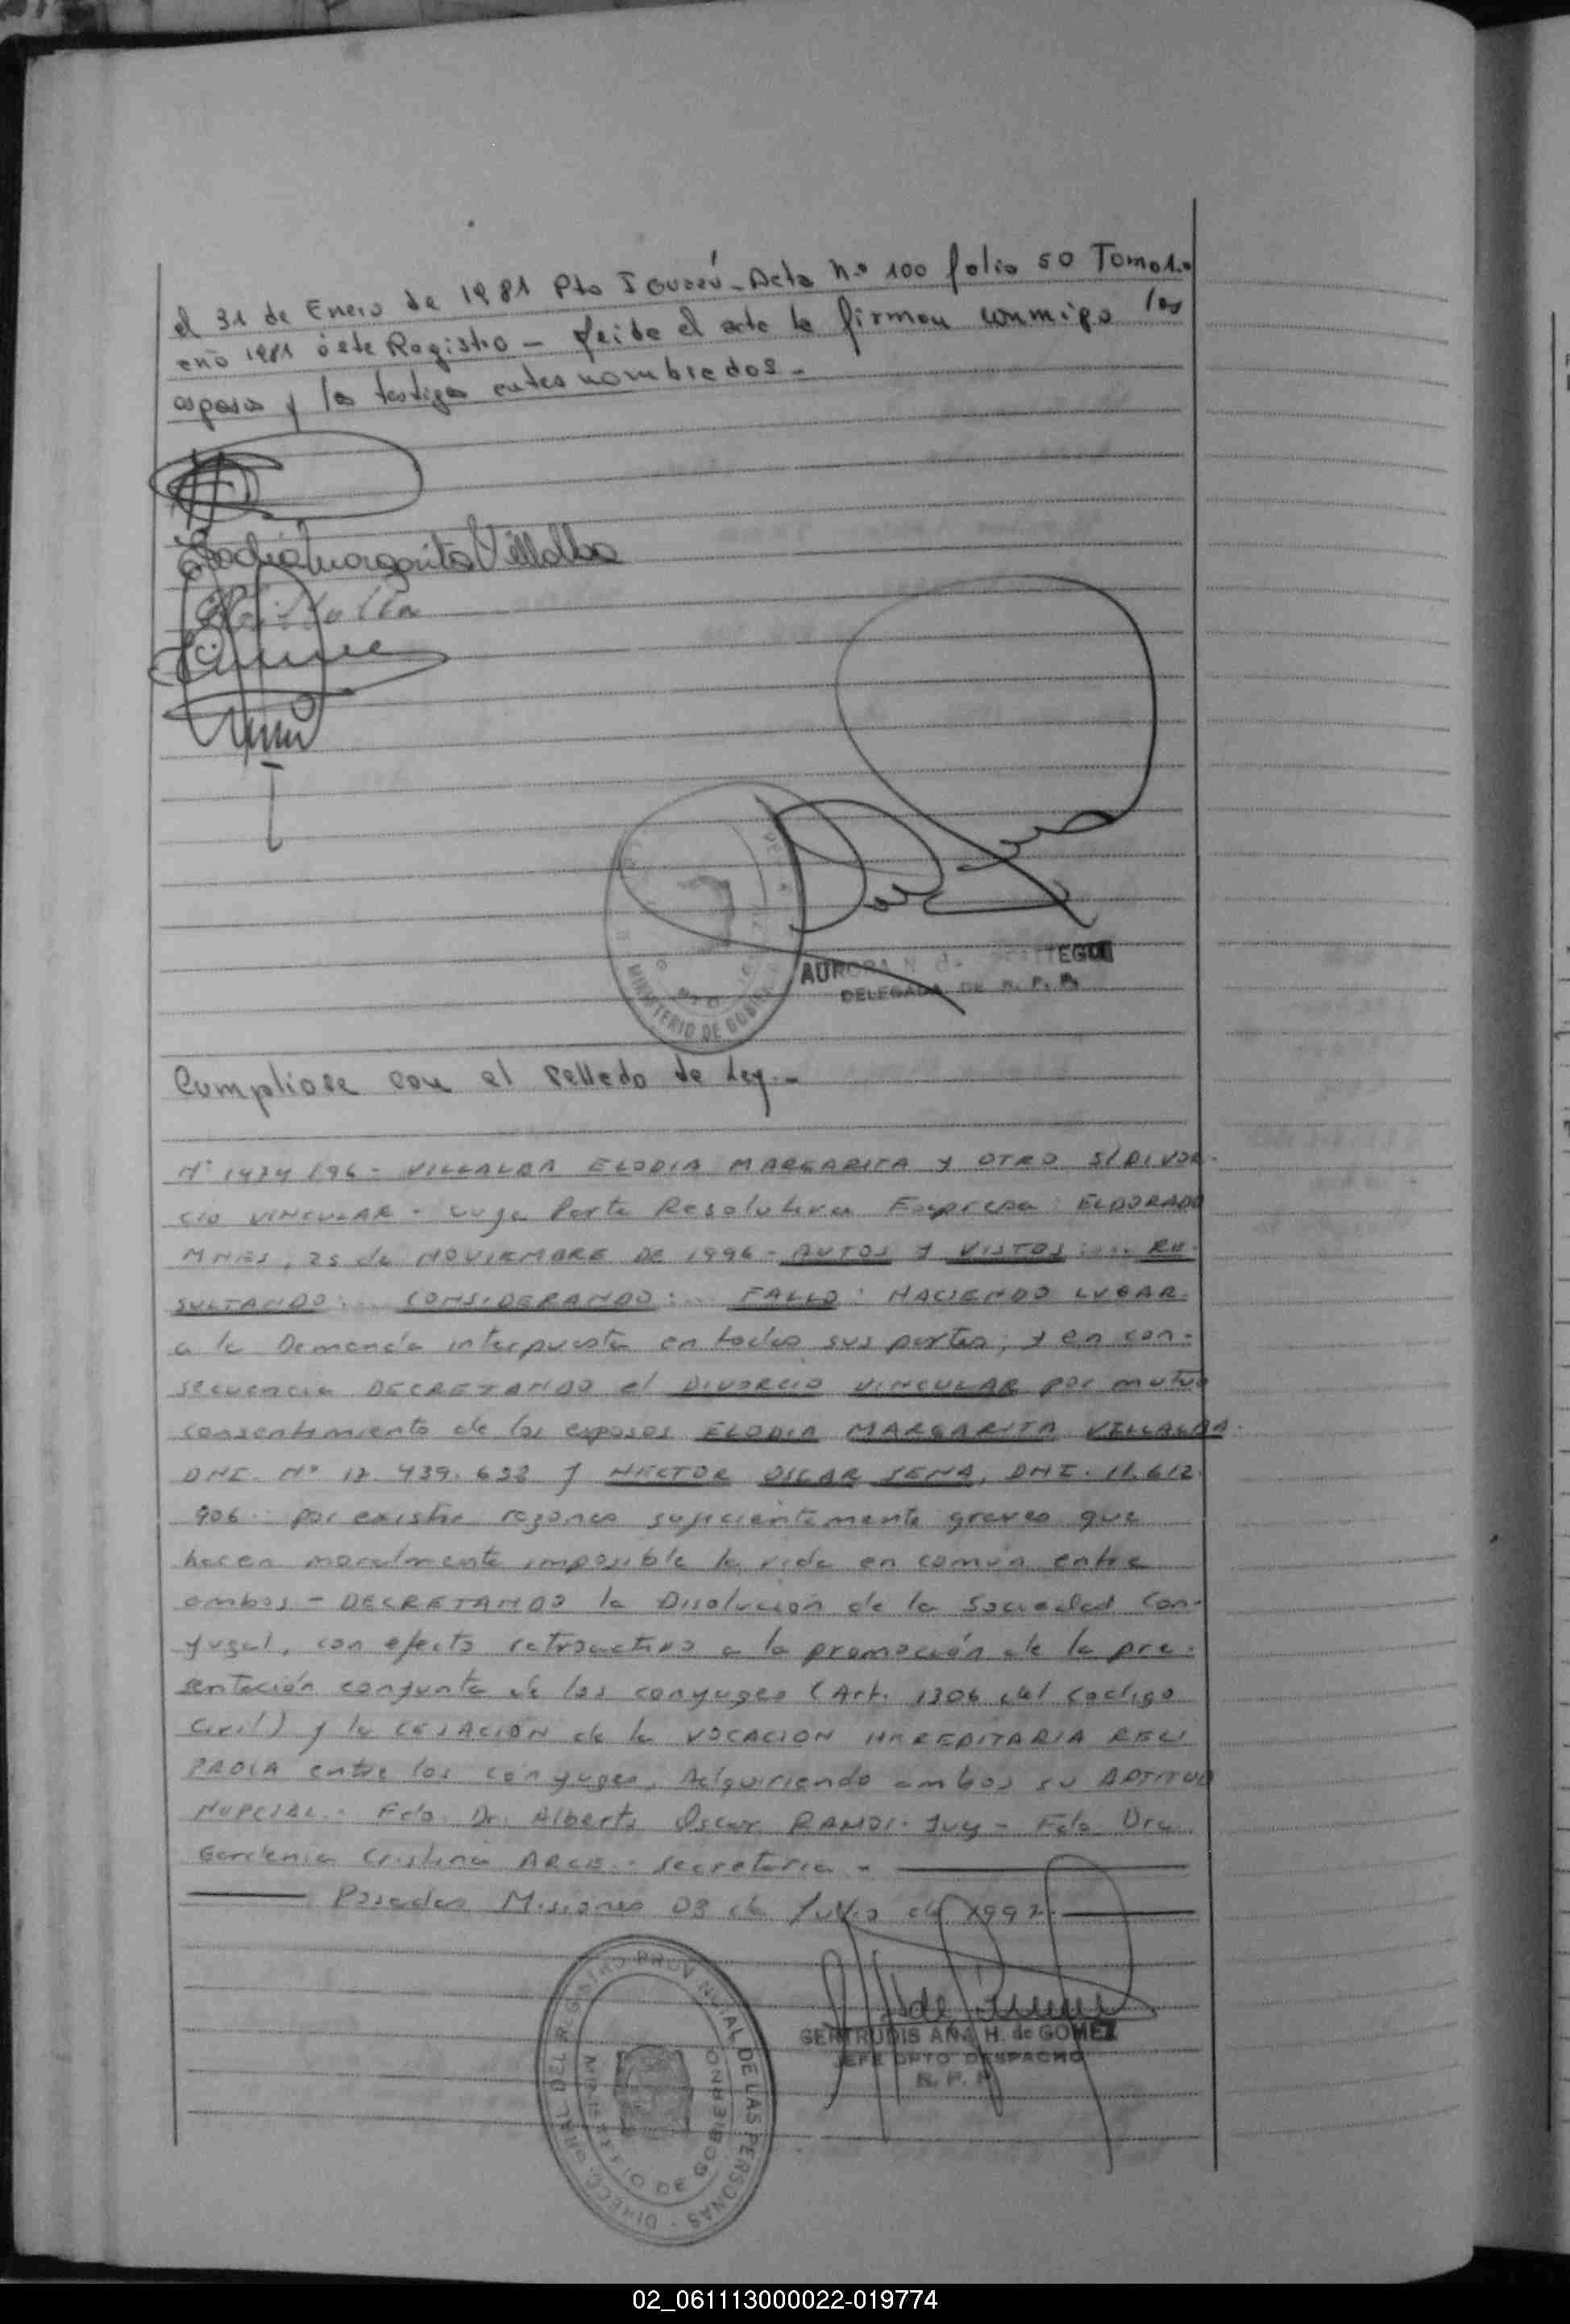 el 31 de Enero de 1981 Pto Iguazú - Acta n.º 100 folio 50 Tomo 1.º
año 1981 de este Registro - Leida el acta la firman conmigo los
esposos y los testigos antes nombrados -
Elodia Margarita Villalba
Villalba
MINISTERIO DE GOBIERNO
AURORA N. de
DELEGADA DE R. P. P.
Cumpliose con el sellado de Ley. -
Nº 1474/96 - VILLALBA ELODIA MARGARITA Y OTRO S/DIVOR-
CIO VINCULAR - cuya Parte Resolutiva Expresa: ELDORADO
MNES, 25 de NOVIEMBRE DE 1996 - AUTOS Y VISTOS: ... RE-
SULTANDO: ... CONSIDERANDO: ... FALLO: HACIENDO LUGAR
a la Demanda interpuesta en todas sus partes; y en con-
secuencia DECRETANDO el DIVORCIO VINCULAR por mutuo
consentimiento de los esposos ELODIA MARGARITA VILLALBA -
DNI. Nº 12.439.622 y HECTOR OSCAR SENA, DNI. 11.612.
906. por existir razones suficientemente graves que
hacen moralmente imposible la vida en comun entre
ambos - DECRETANDO la Disolución de la Sociedad Con-
yugal, con efecto retroactivo a la promoción de la pre-
sentación conjunta de los conyuges (Art. 1306 del codigo
Civil) y la CESACION de la VOCACION HEREDITARIA RECI
PROCA entre los conyuges, Adquiriendo ambos su APTITUD
NUPCIAL. - Fdo. Dr. Alberto Oscar RAMOS - Juez - Fdo Dra.
Gardenia Cristina ARCE. - secretaria -
Posadas Misiones 03 de Julio de 1997 -
DIRECC. GRAL. DEL REGISTRO PROVINCIAL DE LAS PERSONAS
MINISTERIO DE GOBIERNO
GERTRUDIS ANA H. de GOMEZ
JEFE DPTO DESPACHO
R. P. P.
02_061113000022-019774